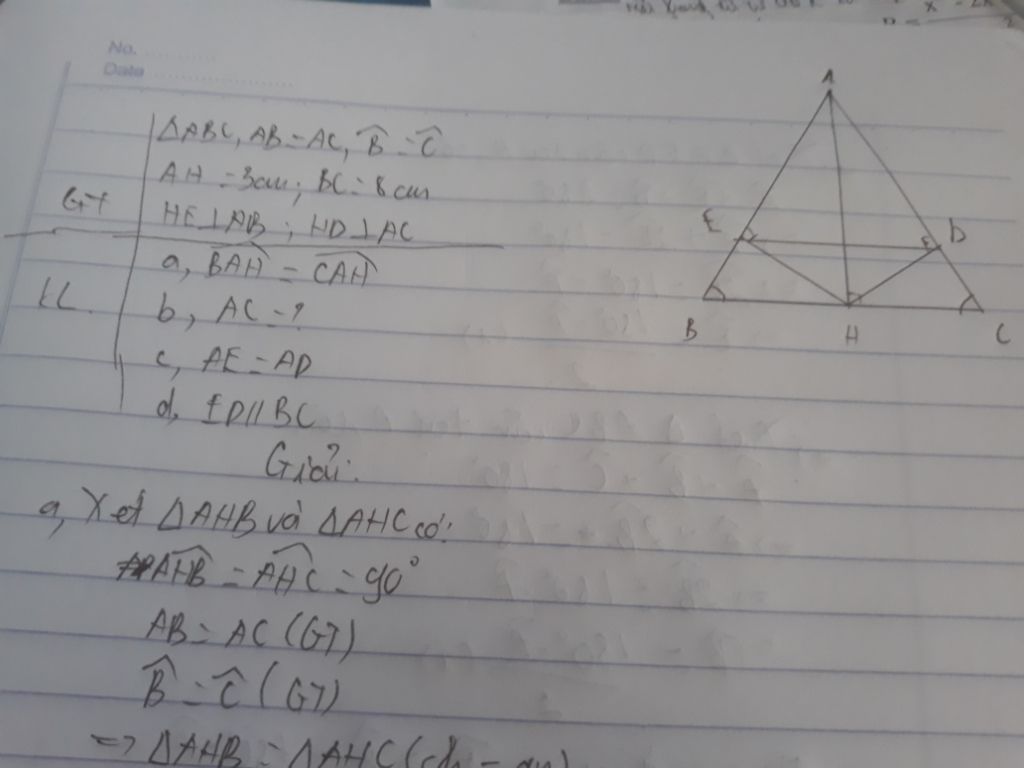 No. ............
Date ....................
GT
ΔABC, AB = AC, B̂ = Ĉ
AH = 3cm; BC = 8cm
HE⊥AB ; HD⊥AC
KL
a, BAH = CAH
b, AC = ?
c, AE = AD
d, ED // BC
Giải:
a, Xét ΔAHB và ΔAHC có:
AHB = AHC = 90°
AB = AC (GT)
B̂ = Ĉ (GT)
=> ΔAHB = ΔAHC (ch - gn)
A
E
D
B
H
C